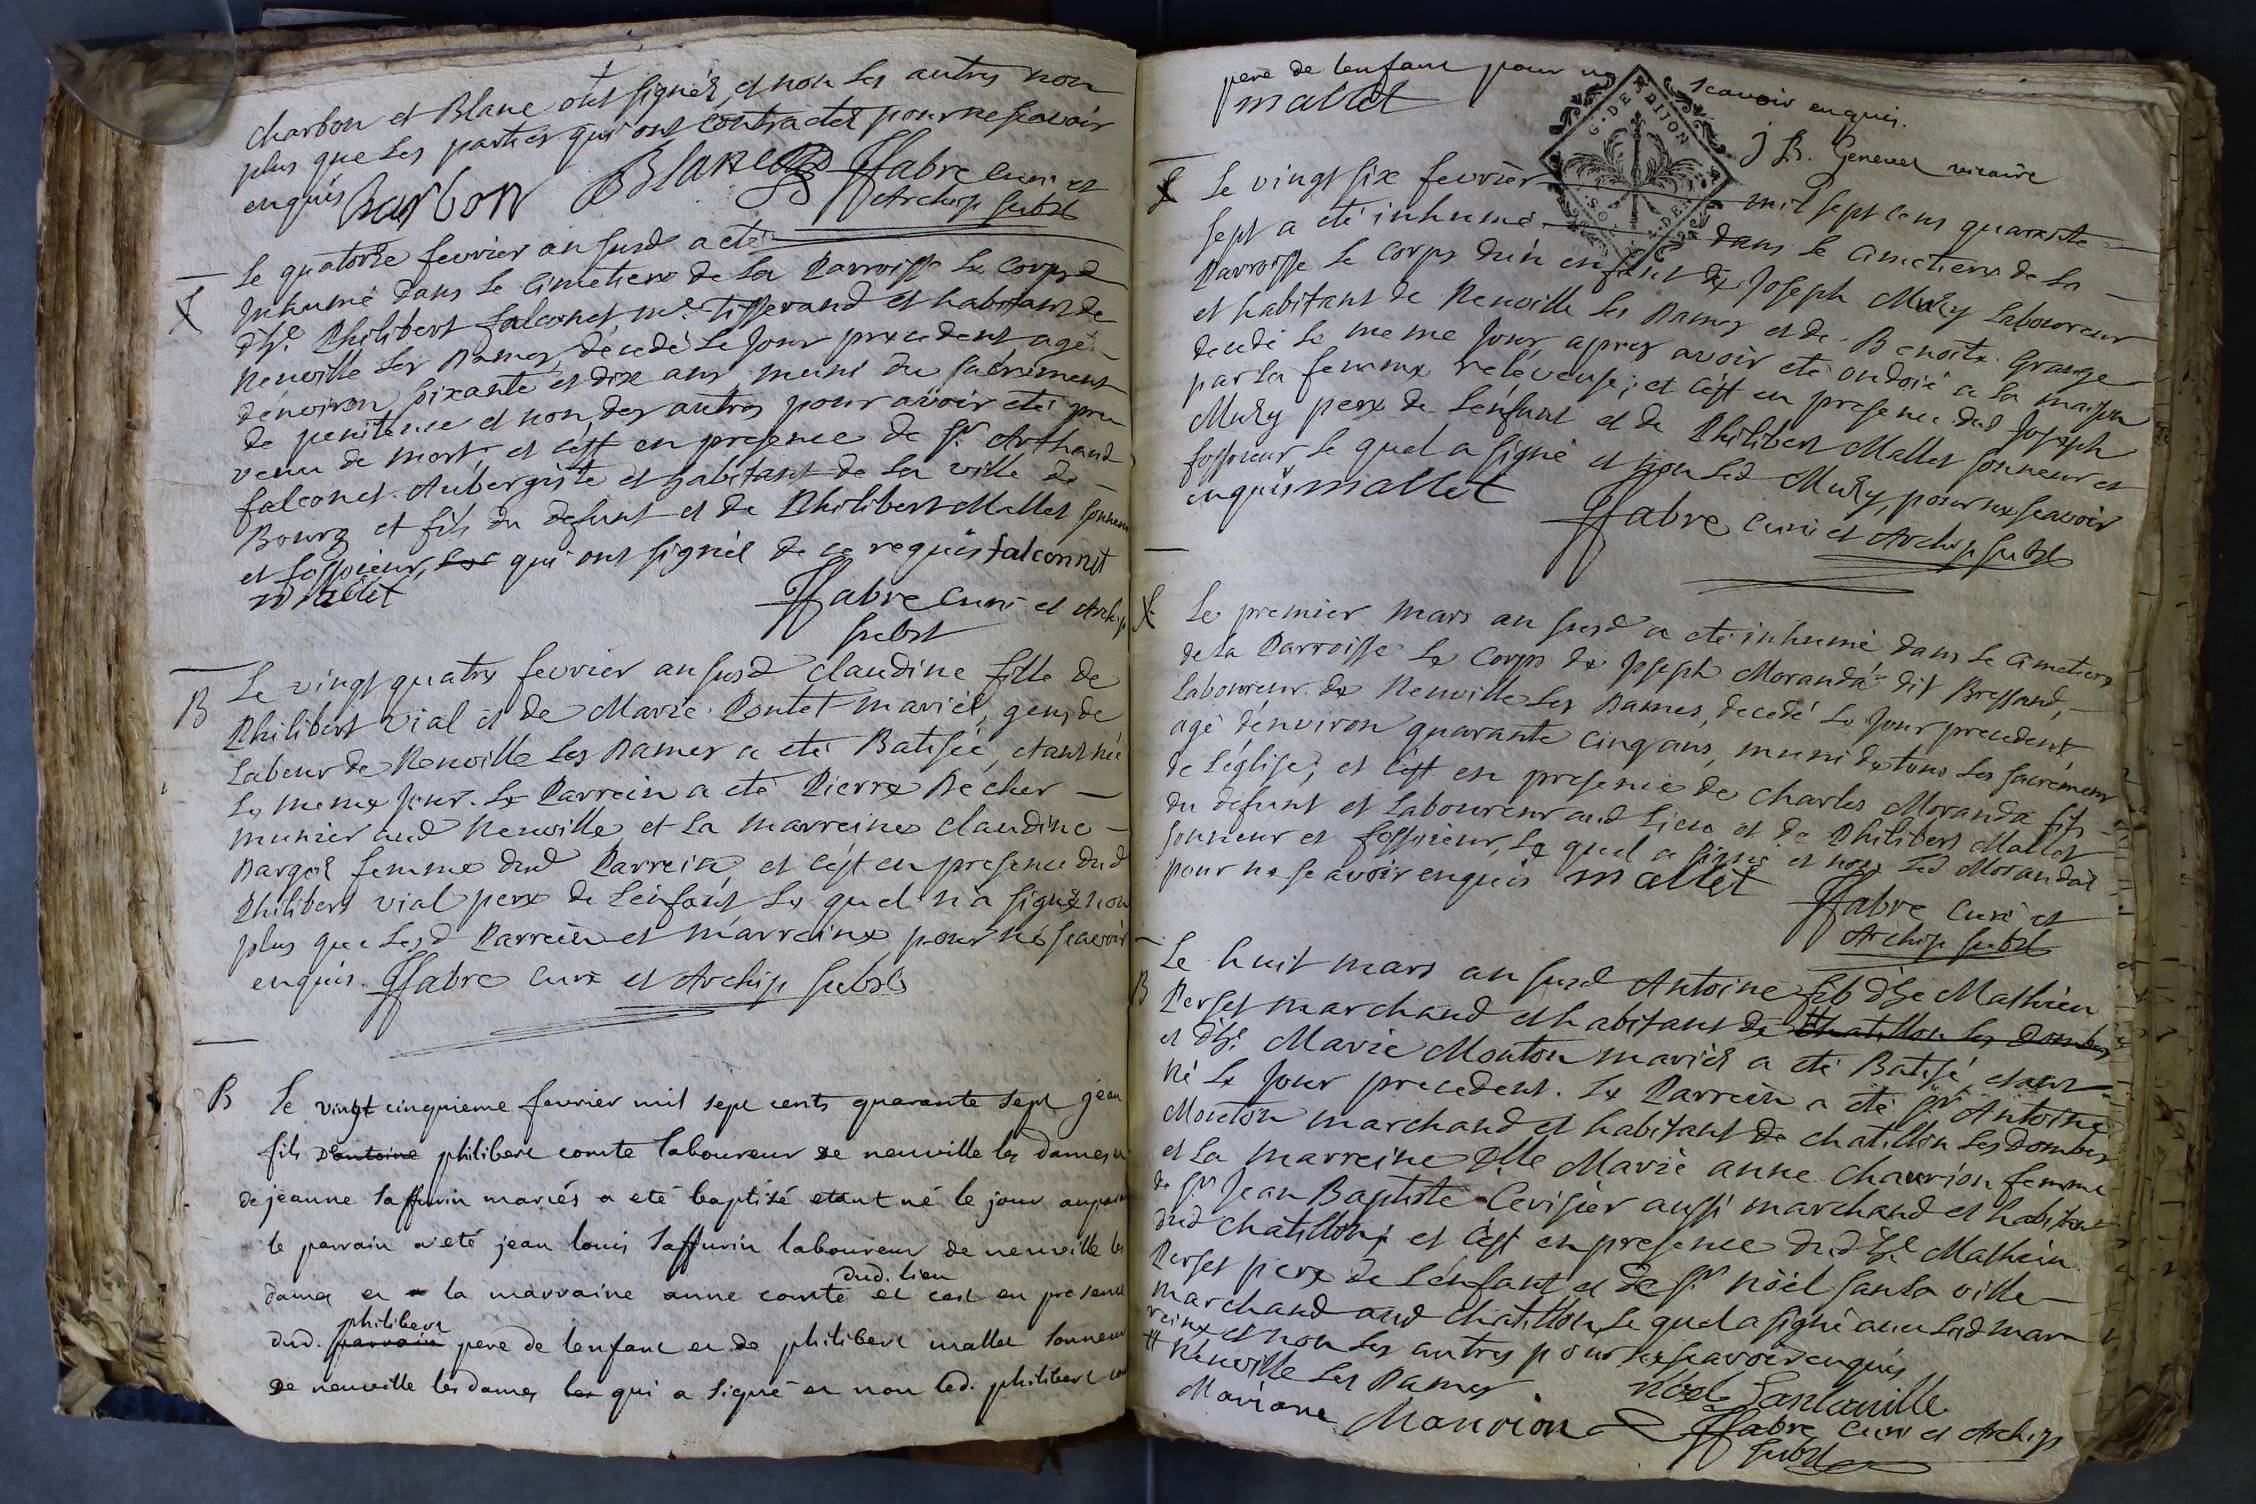 charbon et Blanc ont signéz, et non les autres non
plus que les parties qui ont contractéz pour ne scavoir
enquis Charbon Blanc ffabre curé et
Archip subst
Le quatorze fevrier an susd a eté
Inhumé dans le Cimetiere de la Parroisse le corps d
d'h.e Philibert falconet m.e Tisserand et habitant de
Neuville les Dames, decedé le Jour precedent agé
d'environ soixante et dix ans muni du sacrement
de penitence et non des autres pour avoir eté pre
venu de mort et c'est en presence de Sr. Arthaud
falconet Aubergiste et habitant de la ville de
Bourg et fils du defunt et de Philibert Mallet sonneur
et fossoieur, qui ont signéz de ce requis falconnet
mallet
ffabre curé et Archip
subst
B Le vingt quatre fevrier an susd claudine fille de
Philibert vial et de Marie Pontet mariéz, gens de
Labeur de Neuville les Dames a eté Batisée, etant née
le meme Jour. Le Parrein a eté Pierre Becher
munier aud Neuville et la marreine claudine
Bargel femme dud Parrein, et c'est en presence dud
Philibert vial pere de l'enfant le quel n'a signé non
plus que lesd Parrein et marreine pour ne scavoir
enquis. ffabre curé et Archip subst
B Le vingt cinquieme fevrier mil sept cents quarante sept jean
fils D'antoine philibert comte laboureur de neuville les dames et
de jeanne saffurin mariés a eté baptizé etant né le jour aupara
le parrain a eté jean louis saffurin laboureur de neuville les
dud. lieu
dames et la marraine anne comte et cest en presence
philibert
dud. parrain pere de lenfant et de philibert mallet sonneur
de neuville les dames qui a signé et non led. philibert com
pere de lenfant pour ne scavoir enquis.
mallet
G. DE DIJON
J B. Genevet vicaire
Le vingt six fevrier mil sept cens quarante
sept a eté inhumé dans le cimetiere de la
Parroisse le corps d'un enfant de Joseph Muzy Laboureur
et habitant de Neuville les Dames et de Benoite Grange
decedé le meme Jour apres avoir eté ondoié a la maison
par la femme releveuse; et c'est en presence dud Joseph
Muzy pere de l'enfant et de Philibert Mallet sonneur et
fossoieur le quel a signé et non led Muzy, pour ne scavoir
enquis mallet
ffabre curé et Archip subst
Le premier mars an susd a eté inhumé dans le cimetiere
de la Parroisse le corps de Joseph Moranda dit Bressand,
Laboureur de Neuville les Dames, decedé le Jour precedent
agé d'environ quarante cinq ans, muni de tous les sacrements
de l'église, et c'est en presence de charles Moranda fils
du défunt et Laboureur aud Lieu et de Philibert Mallet
sonneur et fossoieur, le quel a signé et non led Morandat
pour ne scavoir enquis mallet
ffabre curé et
Archip subst
B Le huit mars an susd Antoine fils d'h.e Mathieu
Perset marchand et habitant de Chatillon les Dombes
et d'h.e Marie Mouton mariéz a eté Batisé, etant
né le Jour precedent. Le Parrein a eté Sr. Antoine
Mouton marchand et habitant de chatillon les Dombes
et la marreine Dlle Marie anne chauvion femme
de Sr. Jean Baptiste Cerisier aussi marchand et habitant
dud chatillon; et c'est en presence dud h.e Mathieu
Perset pere de l'enfant et de Sr. Nöel sans la ville
marchand aud chatillon, le quel a signé avec lad mar
reine et non les autres pour ne scavoir enquis
# Neuville les Dames. Nöel Sanlaville
Mariane Mauvion ffabre curé et Archip
subst